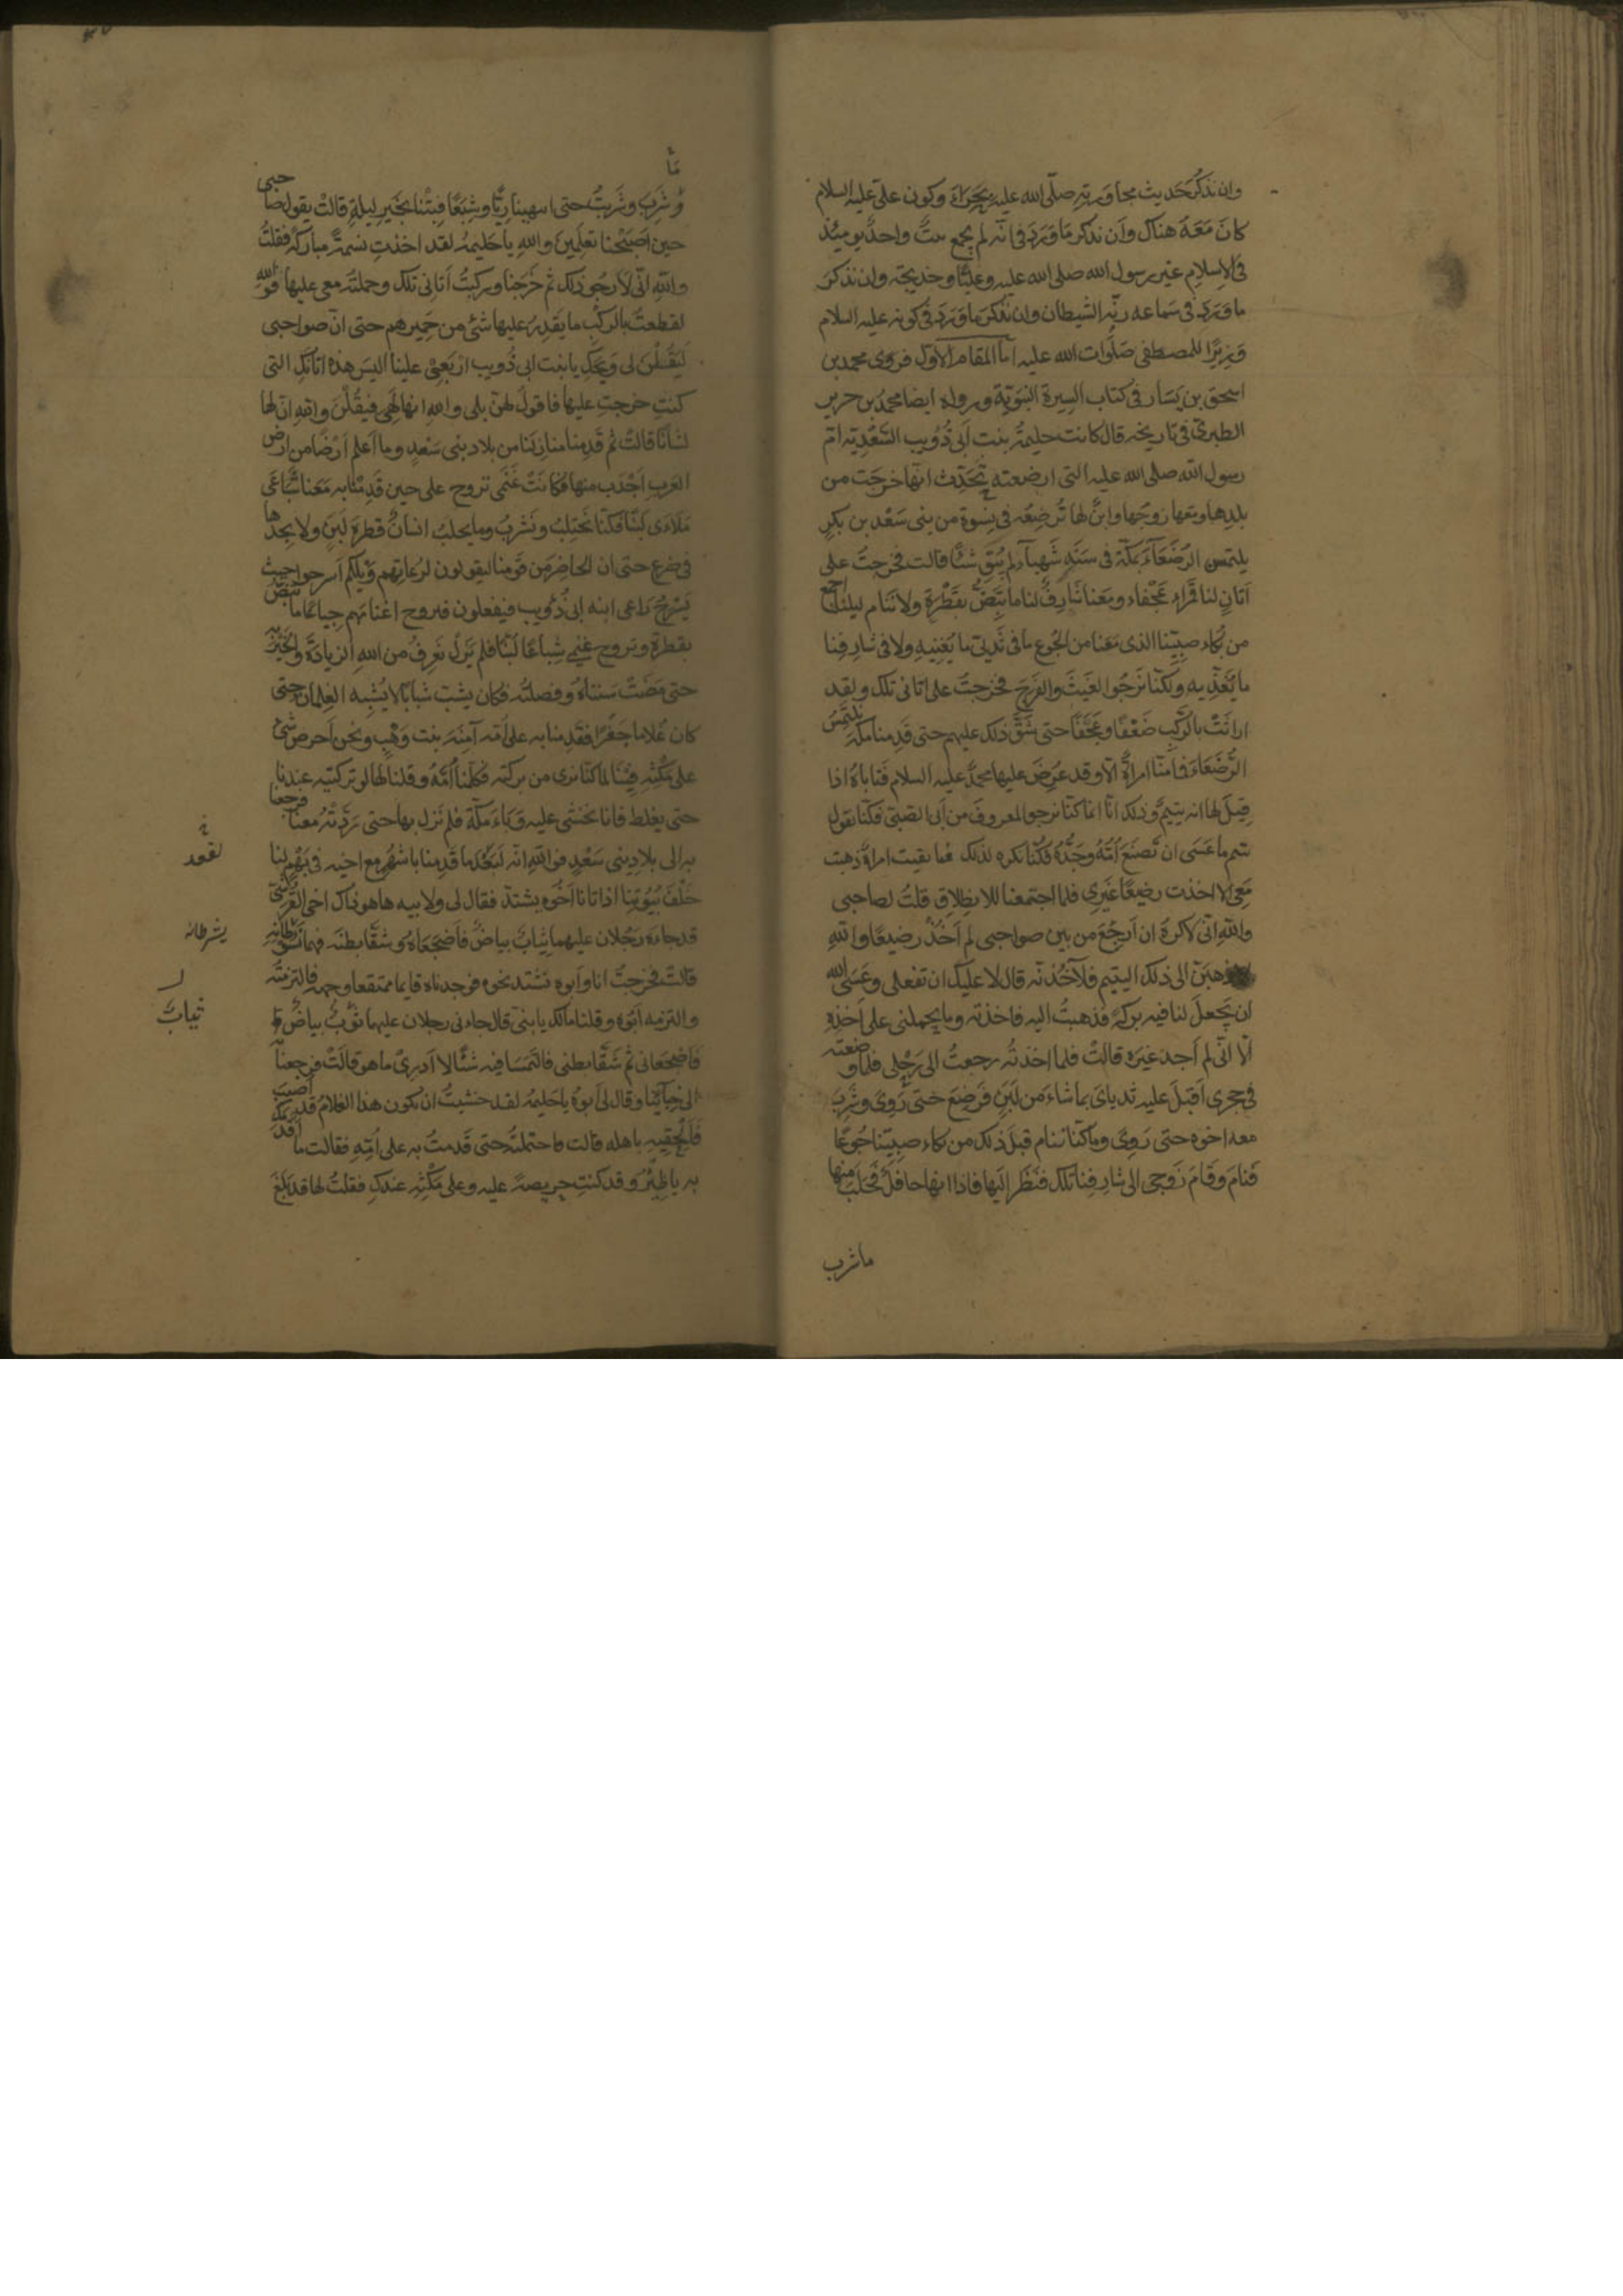 وان نذكر حديث مجاورته صلّى الله عليه بحراء وكون علىّ عليه السلام
كان معه هناك وان نذكر ما ورد فى انّه لم يجمع بيت واحد يومئذ
فى الاسلام غير رسول الله صلى الله عليه وعليّا وخديجة وان نذكر
ما ورد فى سماعه رنّة الشيطان وان نذكر ما ورد فى كونه عليه السلام
وزيرًا للمصطفى صلوات الله عليه امّا المقام الاول فروى محمد بن
اسحق بن يسار فى كتاب السيرة النبوية ورواه ايضا محمد بن جرير
الطبرى فى تاريخه قال كانت حليمة بنت ابى ذُويب السَّعْدية امّ
رسول الله صلى الله عليه التى ارضعته تُحَدِّث انها خرجت من
بلدها ومعها زوجها وابنٌ لها تُرضِعُه فى نسوة من بنى سَعْد بن بكرٍ
يلتمس الرُّضَعَاءَ بمكة فى سَنَةٍ شَهباءَ لم تُبْقِ شئًا قالت فخرجتُ على
اتانٍ لنا قَمْراءَ عَجْفاء ومعنا شارِفٌ لنا ما تَبِضُّ بقَطْرةٍ ولا ننام ليلنا اجمع
من بُكاء صبيّنا الذى معنا من الجُوع ما فى ثَديَىَّ ما يُغنِيهِ ولا فى شارِفِنا
ما يُغَذِّيه ولكنّا نَرجُوا الغَيثَ والفَرَجَ فخرجتُ على اتانى تلك ولقد
اراثَتْ بالرَّكبِ ضَعْفًا وعَجَفًا حتى شَقَّ ذلك عليهم حتى قَدِمنا مكة نلتمِسُ
الرُّضَعَاءَ فما منّا امراةٌ الّا وقد عُرِضَ عليها محمدٌ عليه السلام فتاباهُ اذا
قِيلَ لها انه يتيمٌ وذلك انّا انما كنّا نرجو المعروفَ من اَبى الصّبىّ فكنّا نقول
يتيم ما عَسَى ان تصنَعَ اُمُّهُ وجَدُّهُ فكُنّا نكره لذلك فما بقيت امراةٌ ذهبت
مَعِى الا اخذت رضيعًا غَيْرِى فلما اجتمعنا للانطلاق قلتُ لصاحبى
والله انّى لاكرَهُ ان اَرجِعَ من بين صواحبى لم اخُذْ رضيعًا والله
لاذهبنّ الى ذلك اليتيم فلآخُذنّه قال لا عليكِ ان تفعلى وعَسَى الله
ان يَجعلَ لنا فيه بركةً فذهبتُ اليه فاخذته وما يحملنى على اَخذِهِ
الّا انّى لم اَجد غيرَه قالتْ فلما اخذتُه رجعتُ الى رَحْلِى فلما وضعته
فى حجرى اَقبَلَ عليه ثدياىَ بما شاء من لَبَنٍ فرَضِعَ حتى رَوِىَ وشَرِبَ
معه اخوه حتى رَوِىَ وما كنّا ننام قبلَ ذلك من بكاء صبيّنا جُوعًا
فَنامَ وقامَ زَوجى الى شارفِنا تلك فنَظَر اليها فاذا انها حافِلٌ فحَلَبَ منها
ما شرب
مَا
وشَرِبَ وشَرِبتُ حتى انتهينا رِيًّا وشِبَعًا فبِتْنا بخَيرِ ليلةٍ قالتْ يقول صاحبى
حين اَصبَحْنا تعلمين والله يا حليمةُ لقد اخذتِ نَسَمَةً مباركةً فقلتُ
والله انّى لَاَرجُو ذلك ثم خَرَجنا وركبتُ اَتانى تلك وحملتُه معى عليها فوالله
لقطعتْ بالرَّكْبِ ما يَقدِرُ عليها شئٌ من حَمِيرِهم حتى انّ صواحبى
لَيَقُلْنَ لى وَيْحَكِ يا بنت ابى ذُويب اِرْبَعِى علينا اليسَ هذه اتانَكِ التى
كنتِ خرجتِ عليها فاقول لهنّ بلى والله انها لَهِىَ فيقُلْنَ والله انّ لها
لشانًا قالتْ ثم قَدِمنا منازِلَنا من بلاد بنى سَعْدٍ وما اَعلم اَرْضًا من ارض
العرب اَجْدَبَ منها فكانَتْ غَنَمِى تروح على حين قَدِمْنا به مَعَنا شِباعًا
مَلاءَى لَبَنًا فكُنّا نحتَلِبُ ونَشْرَبُ وما يحلبُ انسانٌ قطرةَ لَبَنٍ ولا يجدها
فى ضرعٍ حتى ان الحاضِرَ من قَومِنا ليقولون لرُعاتِهم وَيْلكم اَسرحوا حيث
يَسْرَحُ رَاعى ابنة ابى ذُويب فيفعلون فتروح اغنامُهم جِياعًا ما تبضّ
بقطرة وتروح غنمى شِباعًا لَبَنًا فلم نَزَلْ نَعرِفُ من اللهِ الزيادَةَ والخير به
حتى مَضَتْ سَنتاهُ وفصلتُه فكان يشبّ شَبابًا لا يُشْبِه الغِلمان حتى
كان غُلاما جَفْرًا فقَدِمنا به على اُمّه آمِنَةَ بنت وَهْبٍ ونحن اَحرص شئ
على مَكْثِهِ فِينا لما كنّا نرى من بركته فكلّمنا اُمَّهُ وقلنا لها لو تركتيه عندنا
حتى يغلط فانا نخشى عليه وَبَاءَ مكّة فلم نَزل بها حتى رَدَّتْهُ معنا فرجعنا
به الى بلاد بنى سَعْدٍ فوالله انّه لَبَعْدَ ما قَدِمنا باشهُرٍ مع اخيه فى بَهْمٍ لنا
خَلْفَ بُيُوتِنا اذ اتانا اَخُوه يشتدّ فقال لى ولابيه ها هو ذاك اخى القُرَشِىّ
قد جاءه رَجُلان عليهما ثِيابٌ بِياضٌ فاَضجَعاهُ وشَقّا بطنَه فهما يسوطانه
قالت فخرجتُ انا وابوه نشتد نحوه فوجدناه قايما ممتقعا وجهه فالتزمته
والتزمه اَبُوه وقلنا مالك يا بنىّ قال جاءنى رجلان عليهما ثِيابٌ بياضٌ
فاضجعانى ثم شَقّا بطنى فالتَمَسا فيه شئًا لا اَدرِى ما هو قالَتْ فرجعنا
الى خِبائنا وقال لى اَبوهُ يا حَليمةُ لقد خشيتُ ان يكون هذا الغلامُ قد اُصيب
فاَلْحِقيهِ باهله قالت فاحتملتُه حتى قَدِمتُ به على اُمّهِ فقالت ما اَقدَمَكِ
به يا ظِئرُ وقد كنتِ حريصةً عليه وعلى مَكْثِه عندكِ فقلتُ لها قد بلغَ
ثيابٌ